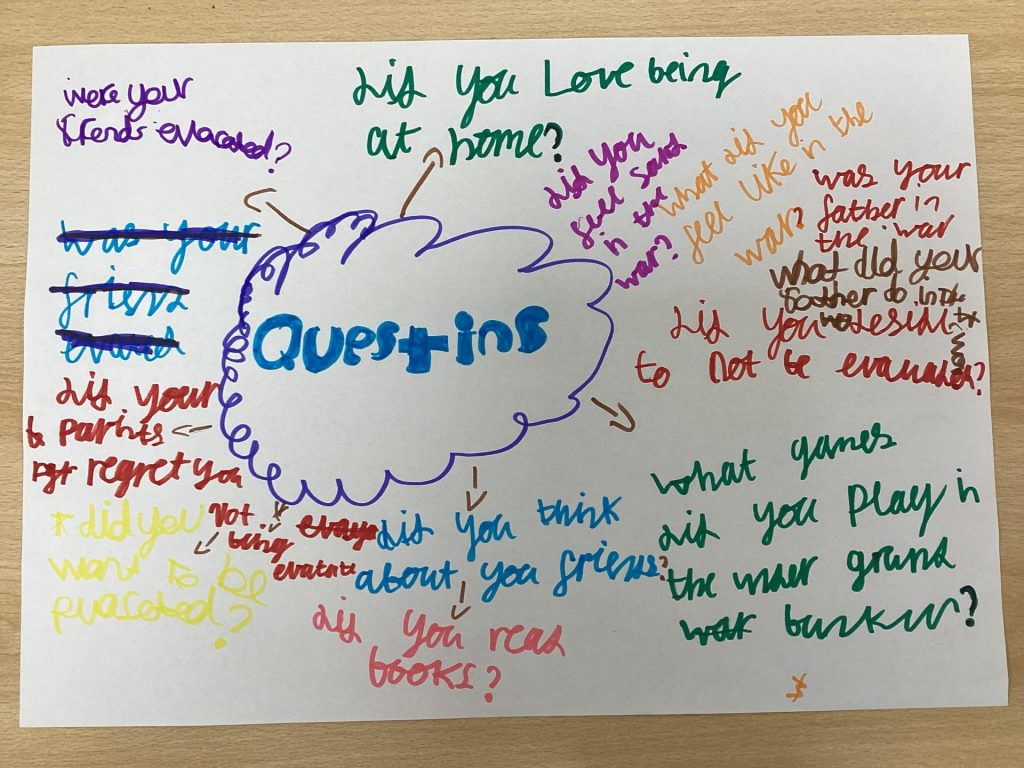 were your
friends evacated?
did you Love being
at home?
did you
feel sand
in the
war?
what did you
feel like in the
war?
was your
father in
the war
what did your
father do in the
did you deside
to not be evacuated?
Questins
was your
friend
evaced
did your
parints
regret you
not
being
evacute
did you
want to be
evaceted?
did you think
about you friends?
did you read
books?
what games
did you play in
the under ground
bunker?